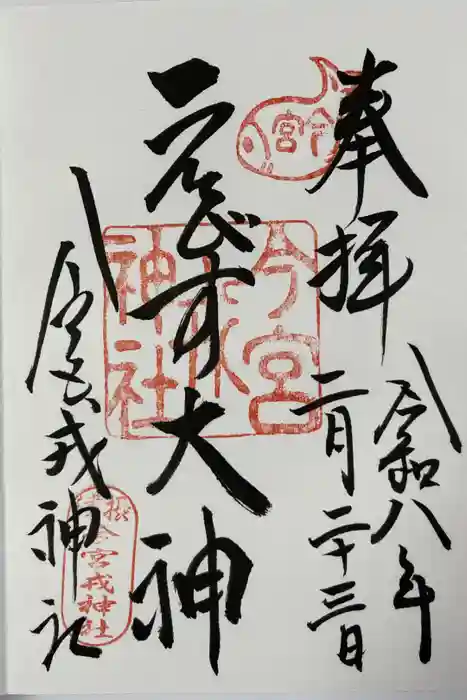 奉拝
令和八年
二月二十三日
今宮
ゑびす大神
今宮
神社
今宮戎神社
今宮戎神社